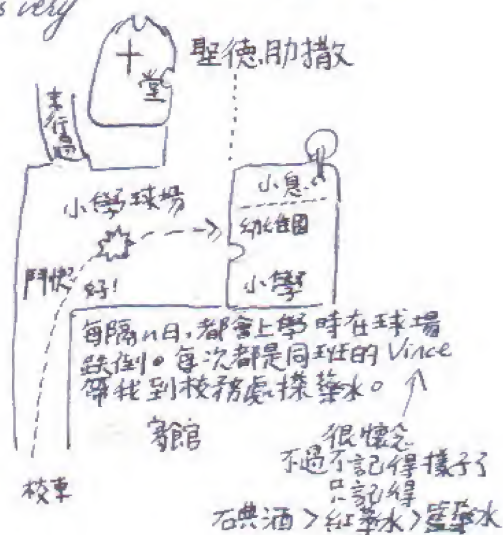 s very
堂
聖德肋撒
未行過
小息
小學球場
幼稚園
鬥快
好!
小學
每隔n日,都會上學時在球場
跌倒。每次都是同班的Vince
帶我到校務處搽藥水。
寄館
很懷念
不過不記得樣子了
只記得
校車
碘酒>紅藥水>藍藥水